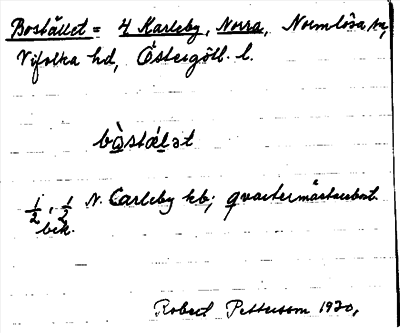 Bostället = 4 Karleby, Norra, Normlösa sn,
Vifolka hd, Östergötl. l.
bo̯stälət
1/2, 1/2 N. Carleby kb; qvartermästarebost.
bek.
Robert Pettersson 1930,